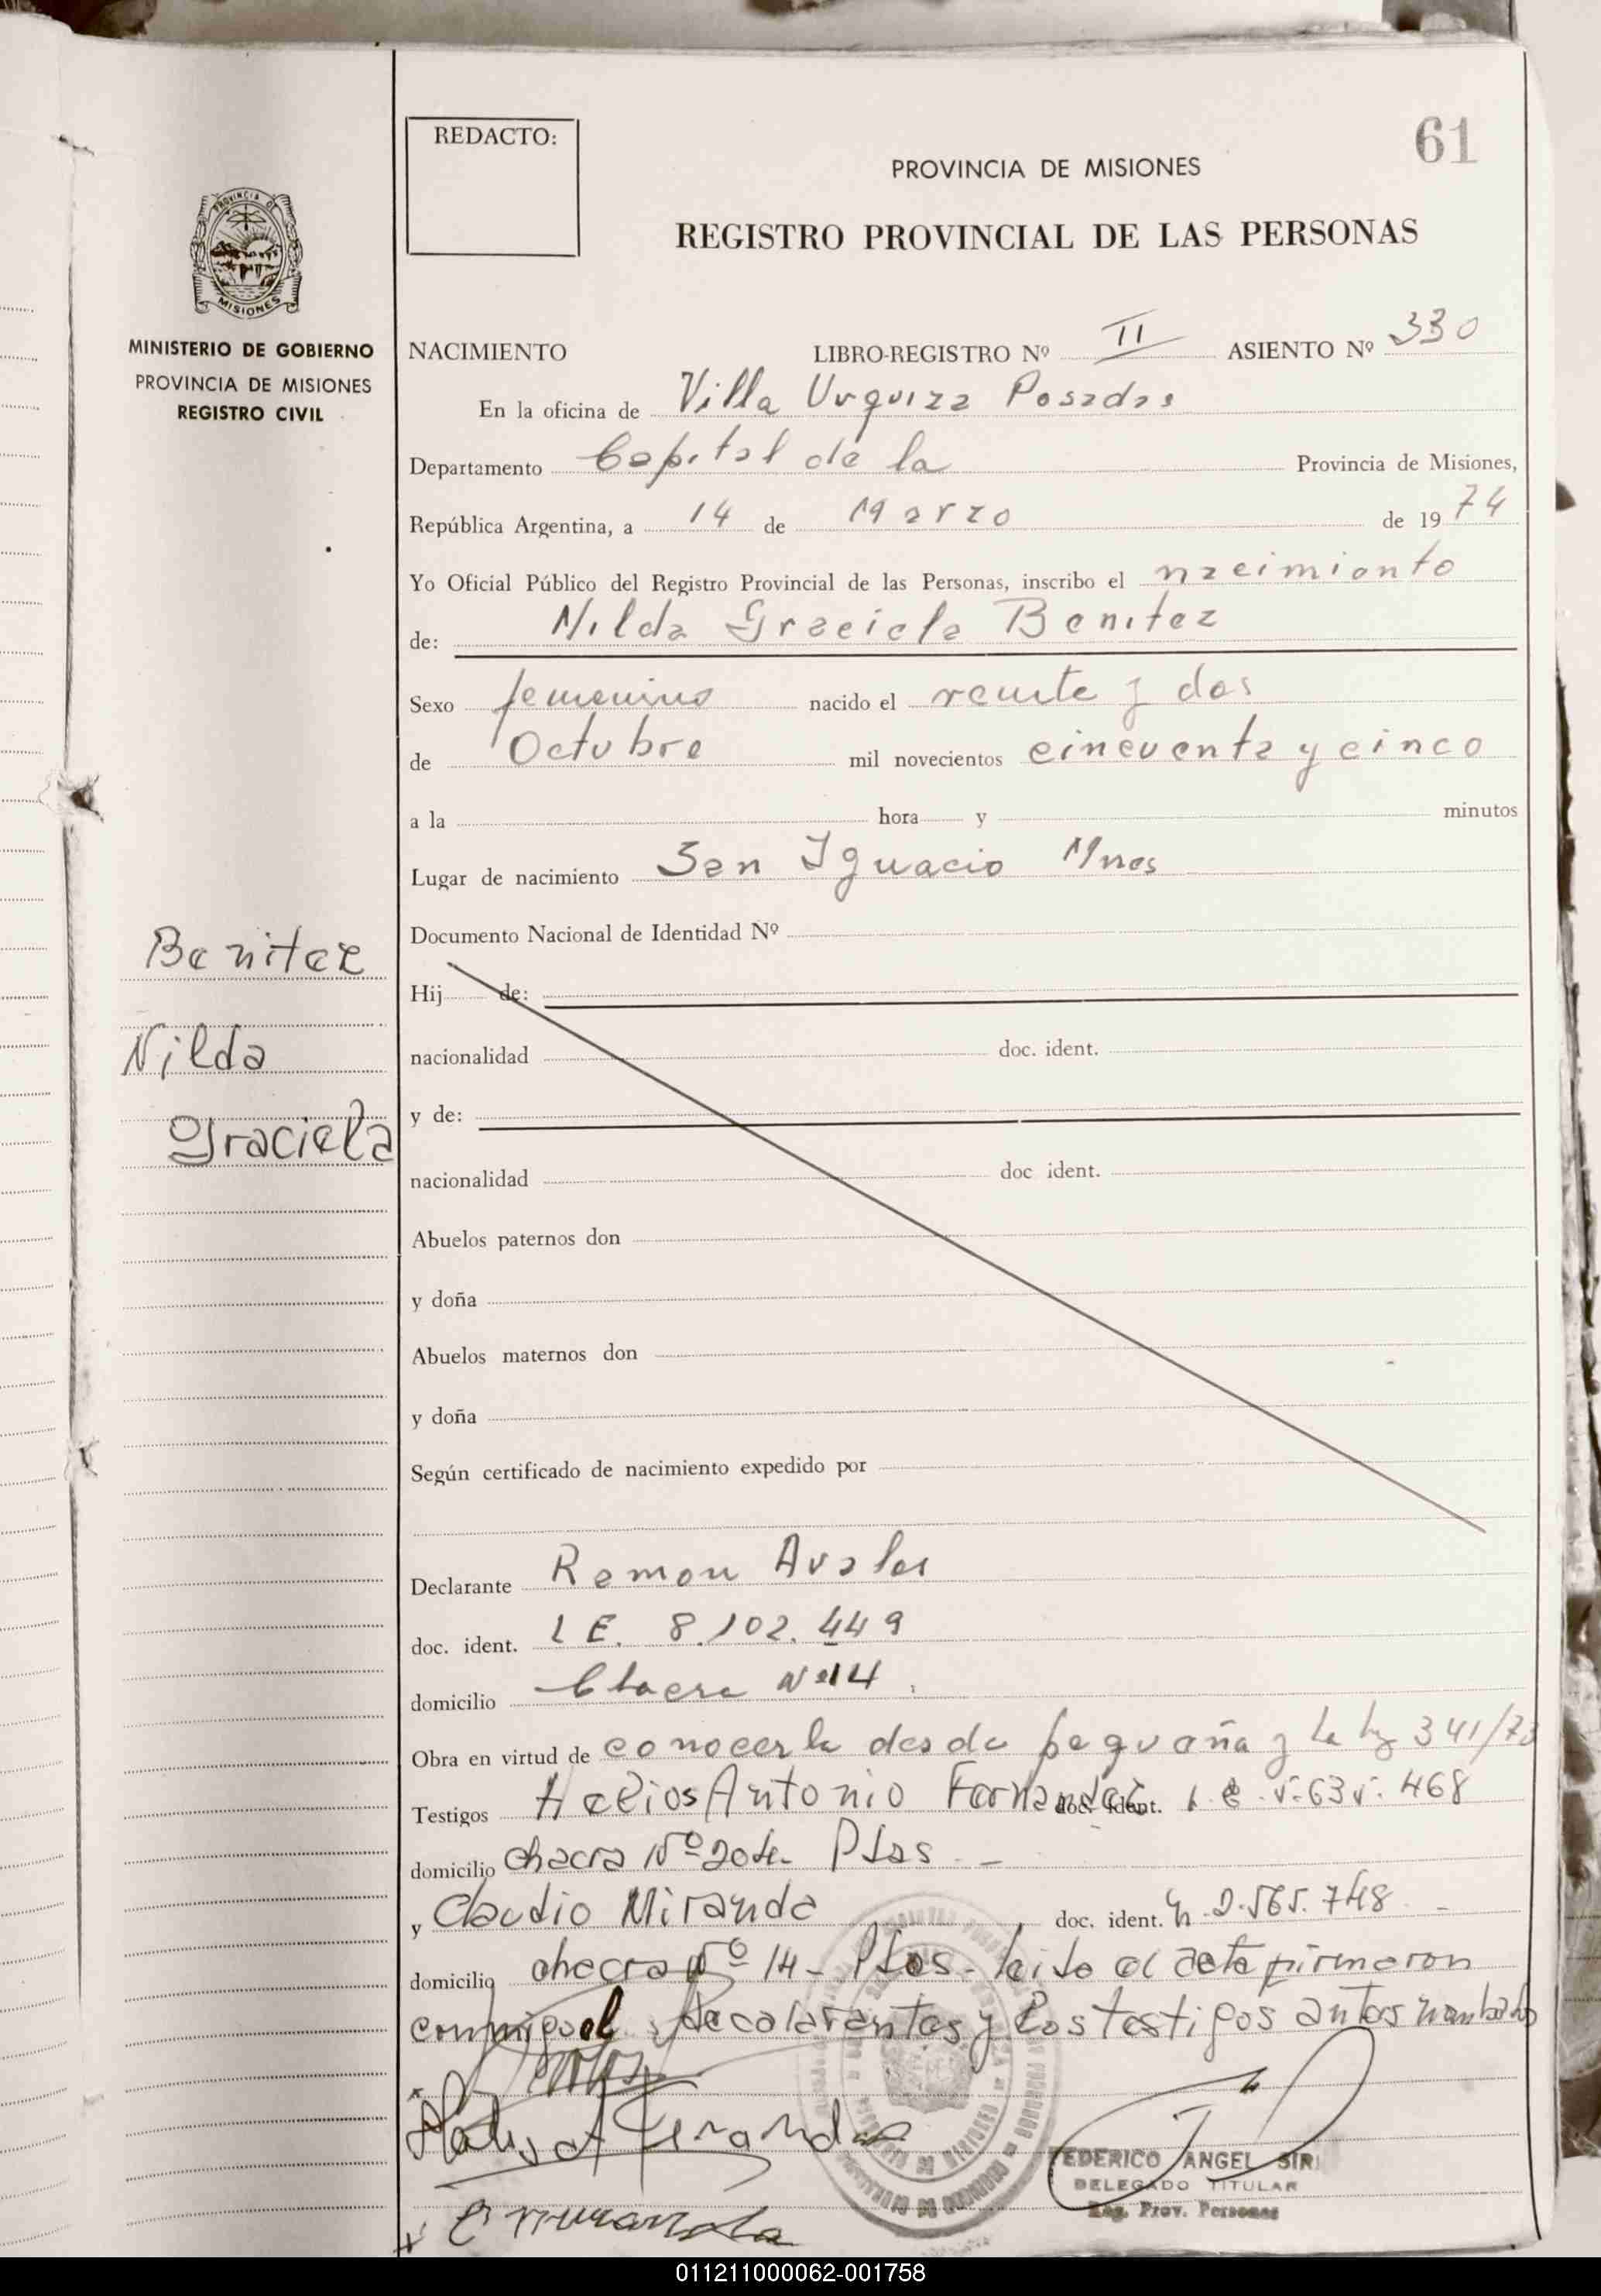 61
REDACTO:
PROVINCIA DE MISIONES
REGISTRO PROVINCIAL DE LAS PERSONAS
PROVINCIA DE
MISIONES
MINISTERIO DE GOBIERNO
PROVINCIA DE MISIONES
REGISTRO CIVIL
NACIMIENTO LIBRO-REGISTRO Nº II ASIENTO Nº 330
En la oficina de Villa Urquiza Posadas
Departamento Capital de la Provincia de Misiones,
República Argentina, a 14 de Marzo de 1974
Yo Oficial Público del Registro Provincial de las Personas, inscribo el nacimiento
de: Nilda Graciela Benitez
Sexo femenino nacido el veinte y dos
de Octubre mil novecientos cincuenta y cinco
a la hora y minutos
Lugar de nacimiento San Ignacio Mnes
Documento Nacional de Identidad Nº
Benitez
Nilda
Graciela
Hij de:
nacionalidad doc. ident.
y de:
nacionalidad doc ident.
Abuelos paternos don
y doña
Abuelos maternos don
y doña
Según certificado de nacimiento expedido por
Declarante Ramon Avalos
doc. ident. L E. 8.102.449
domicilio Chacra Nº 14
Obra en virtud de conocerla desde pequeña y la ley 341/73
Testigos Helios Antonio Fernandez doc. ident. 468
domicilio chacra Nº 204- Pdas
y Claudio Miranda doc. ident. 2.565.748
domicilio chacra Nº 14 - Pdas - leido el acta firmaron
conmigo el decalarantes y los testigos antes
FEDERICO ANGEL SIRI
DELEGADO TITULAR
Reg. Prov. Personas
011211000062-001758